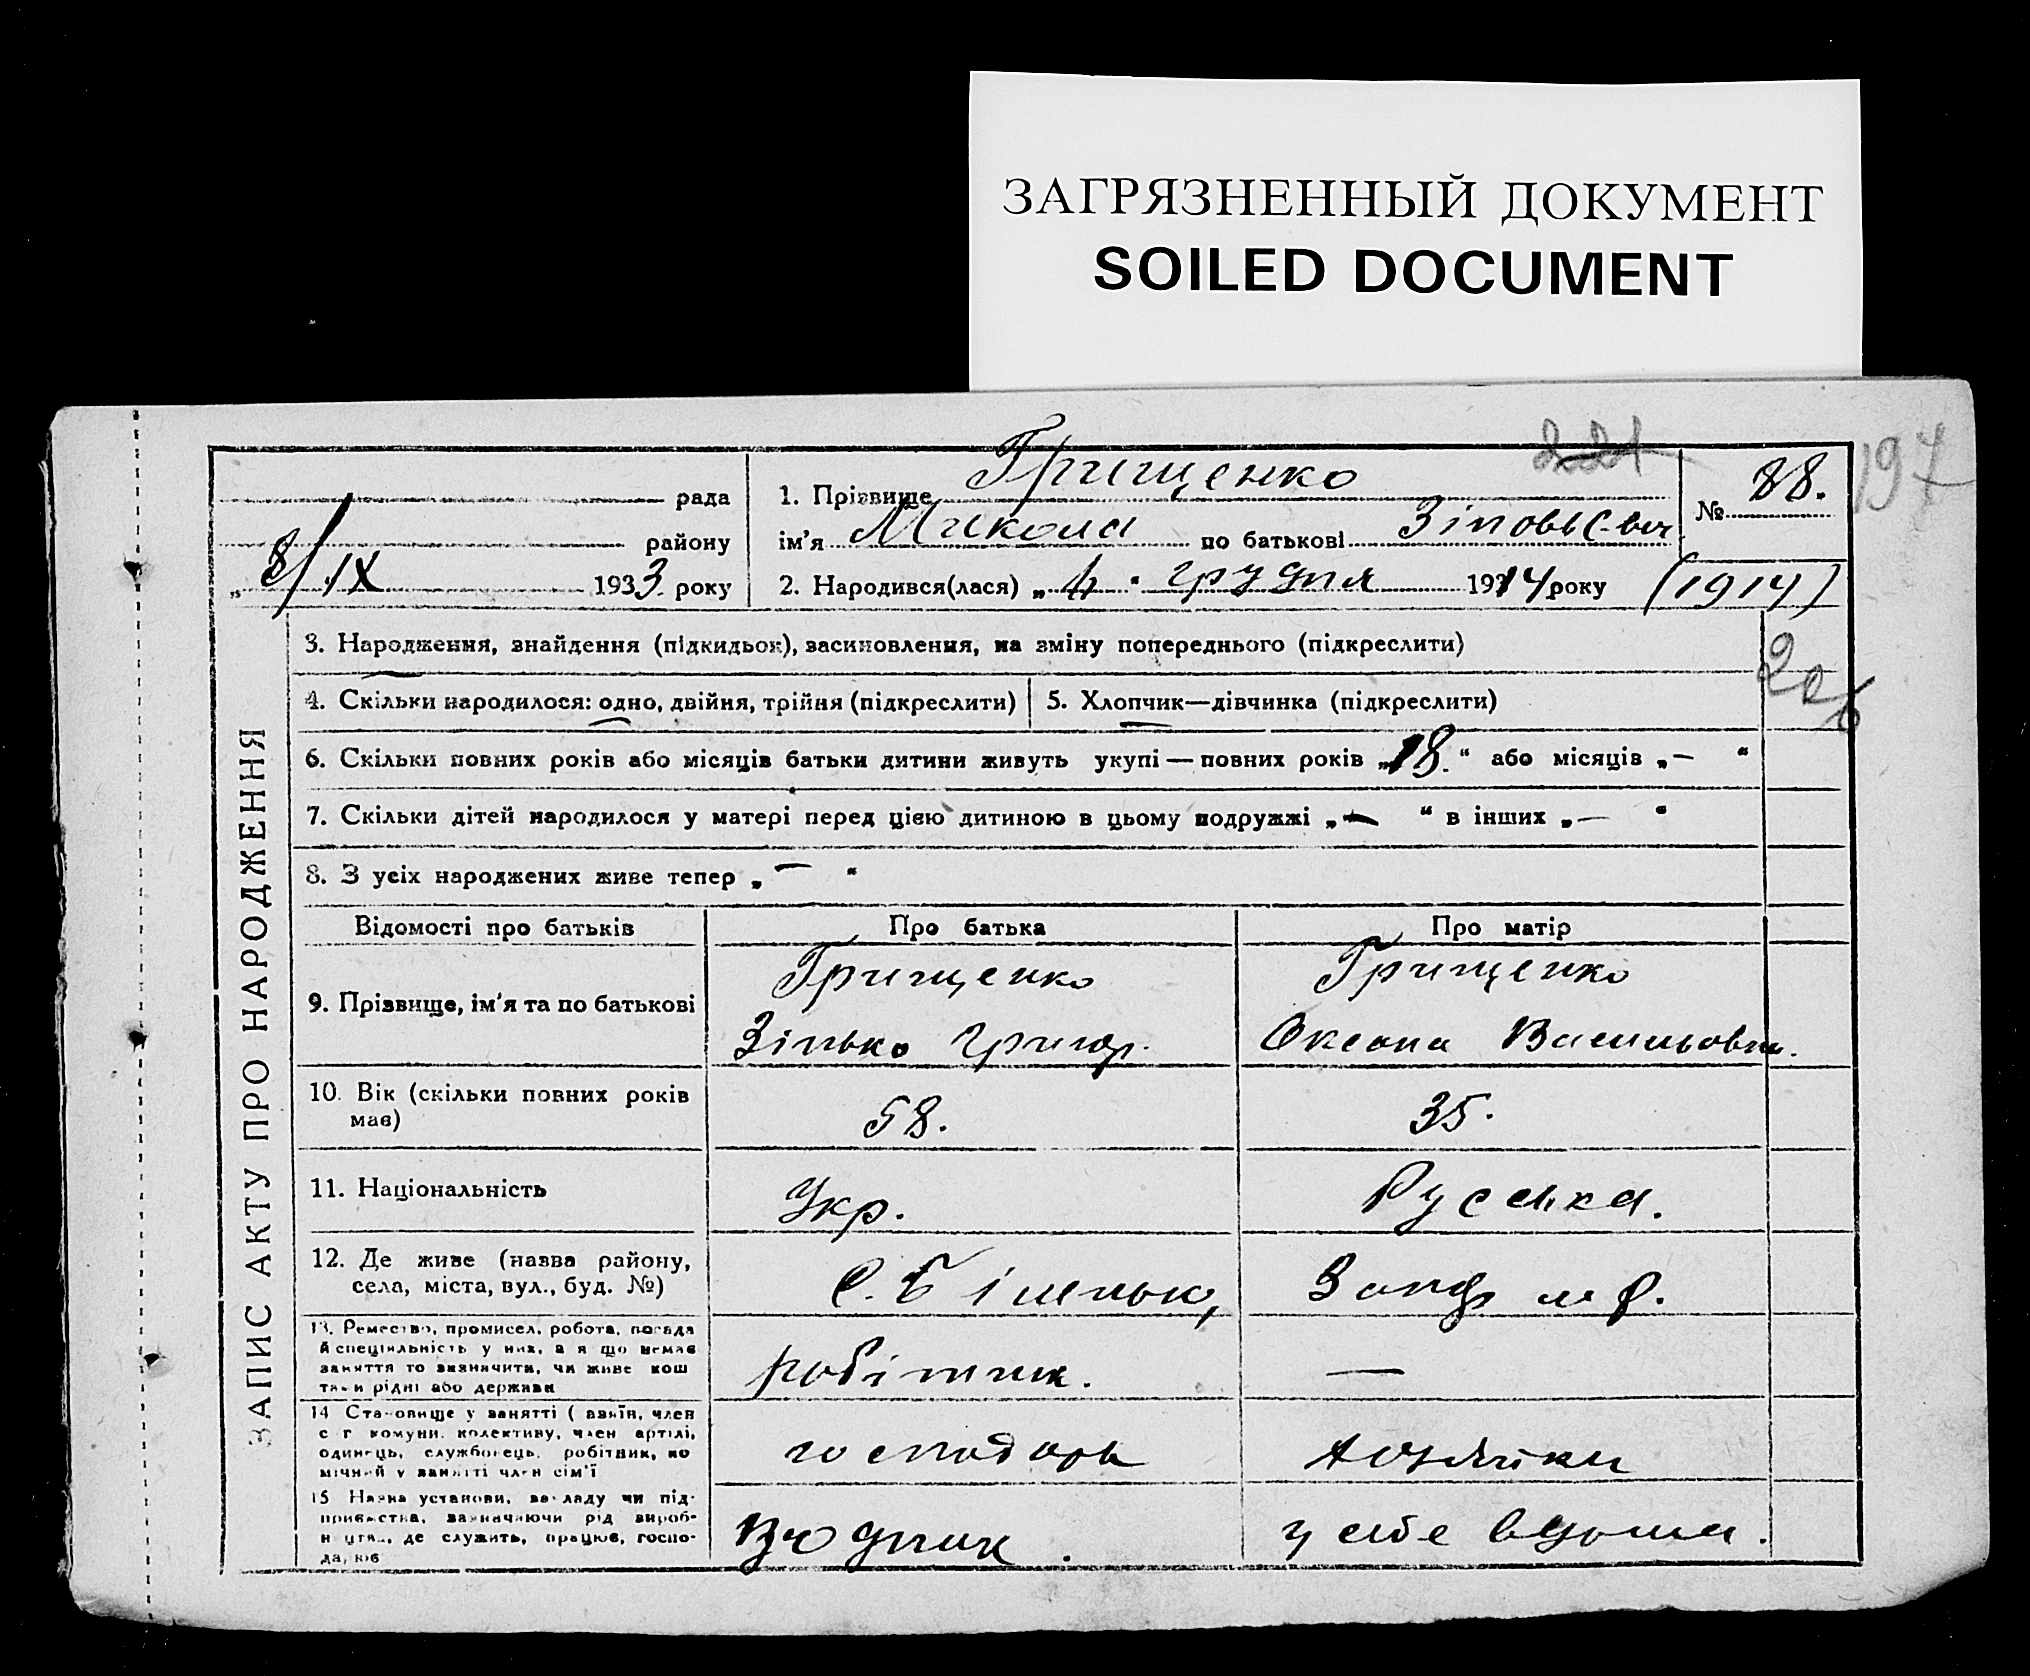 ЗАГРЯЗНЕННЫЙ ДОКУМЕНТ
SOILED DOCUMENT
221
197
рада
району
„8/IX 1933 року
1. Прізвище Грищенко
ім'я Микола по батькові Зіновьєвич
№ 88.
2. Народився(лася) „4" грудня 1914 року (1914)
ЗАПИС АКТУ ПРО НАРОДЖЕННЯ
3. Народження, знайдення (підкидьок), засиновлення, на зміну попереднього (підкреслити)
226
4. Скільки народилося: одно, двійня, трійня (підкреслити)
5. Хлопчик—дівчинка (підкреслити)
6. Скільки повних років або місяців батьки дитини живуть укупі — повних років „18." або місяців „—"
7. Скільки дітей народилося у матері перед цією дитиною в цьому подружжі „—" в інших „—"
8. З усіх народжених живе тепер „—"
Відомості про батьків
Про батька
Про матір
9. Прізвище, ім'я та по батькові
Грищенко
Зінько Григор.
Грищенко
Оксана Васильовна.
10. Вік (скільки повних років
має)
58.
35.
11. Національність
Укр.
Руська.
12. Де живе (назва району,
села, міста, вул., буд. №)
С.
13. Ремество, промисел, робота, посада
й спеціяльність у них, а я що немає
заняття то визначити, чи живе кош
тами рідні або держави
робітник.
—
14 Становище у занятті (хазяїн, член
с г комуни, колективу, член артілі,
одинець, службовець, робітник, по
мічний у занятті член сім'ї
господарь
хозяйки
15 Назва установи, закладу чи під-
приємства, зазначаючи рід вироб-
ництва, де служить, працює, госпо-
дарює
Водник.
у себе вдома.